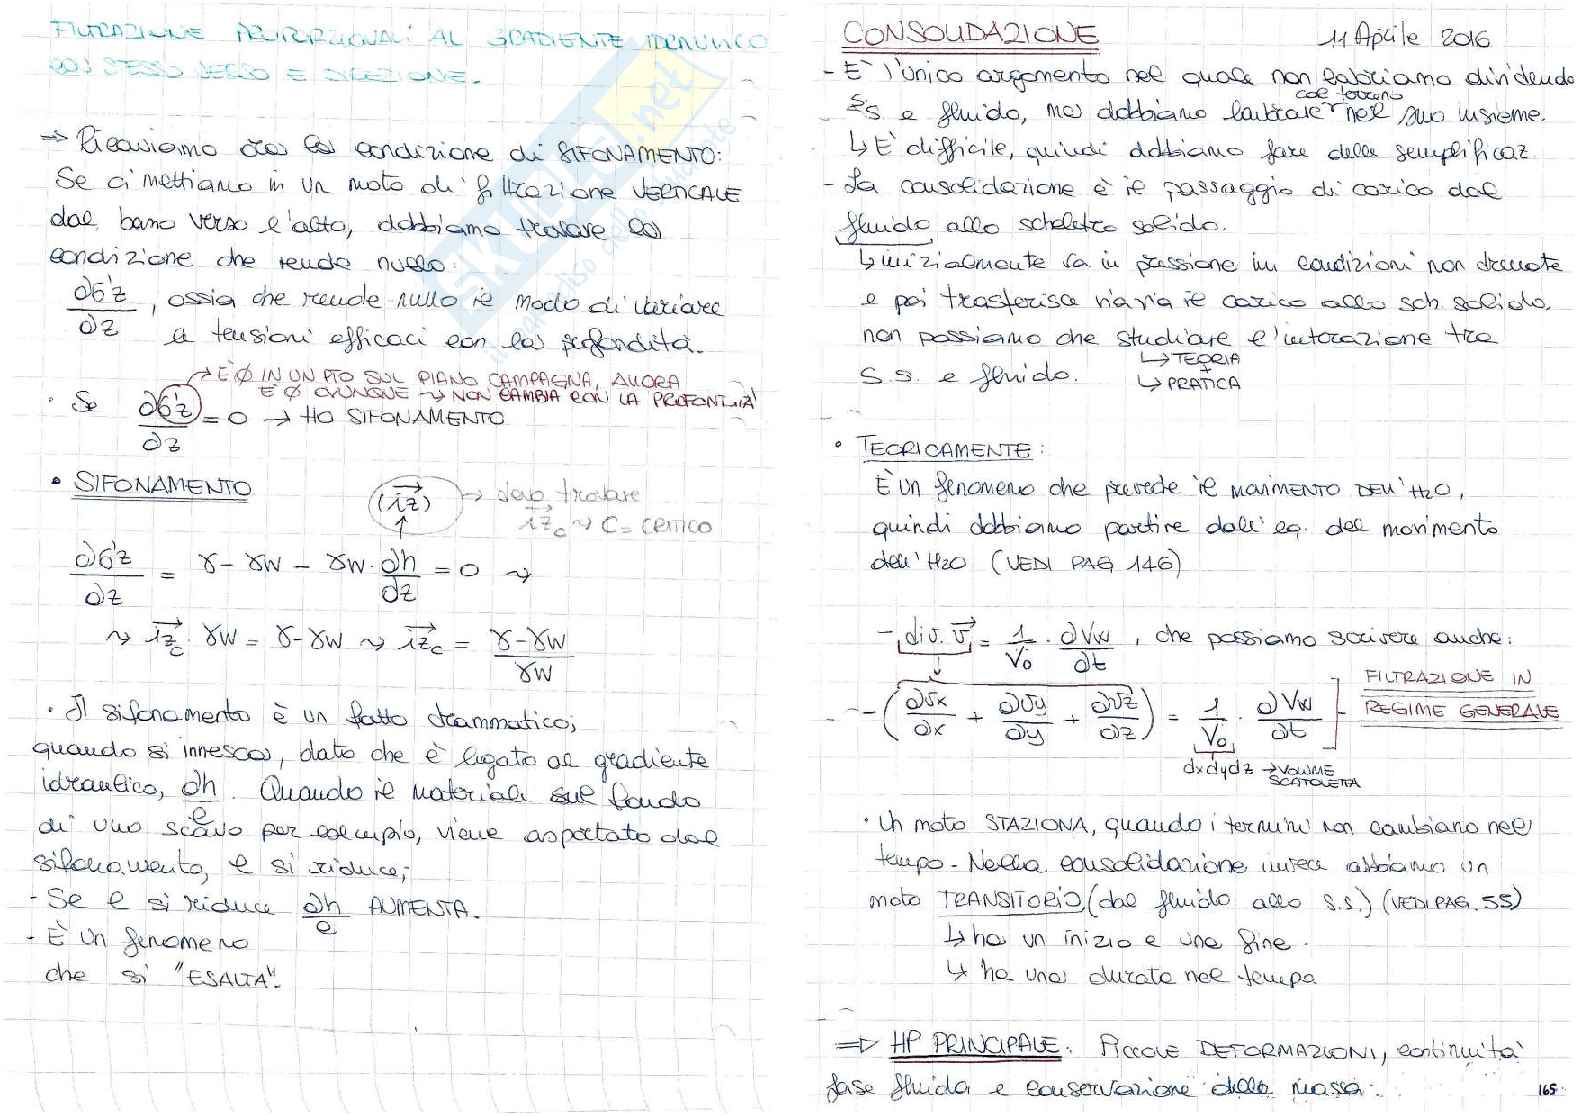 FILTRAZIONE PROPORZIONALI AL GRADIENTE IDRAULICO
STESSO VERSO E DIREZIONE.
⇒ Ricaviamo ora la condizione di SIFONAMENTO:
Se ci mettiamo in un moto di filtrazione VERTICALE
dal basso verso l'alto, dobbiamo trovare la
condizione che rende nullo:
∂σ'z/∂z, ossia che rende nullo il modo di variare
tensioni efficaci con la profondità.
→ È Ø IN UN PTO SUL PIANO CAMPAGNA, ALLORA
È Ø OVUNQUE ⇝ NON CAMBIA CON LA PROFONDITÀ
· Se ∂σ'z/∂z = 0 → HO SIFONAMENTO
• SIFONAMENTO
(iz) → devo trovare
izc ⇝ C = CRITICO
∂σ'z/∂z = γ - γw - γw · ∂h/∂z = 0 ⇝
⇝ izc · γw = γ - γw ⇝ izc = (γ - γw)/γw
· Il sifonamento è un fatto drammatico,
quando si innesca, dato che è legato al gradiente
idraulico, ∂h/l. Quando il materiale sul fondo
di uno scavo per esempio, viene asportato dal
sifonamento, l si riduce;
- Se l si riduce ∂h/l AUMENTA.
- È un fenomeno
che si "ESALTA".
CONSOLIDAZIONE 11 Aprile 2016
- È l'unico argomento nel quale non lavoriamo dividendo
S.s. e fluido, ma dobbiamo lavorare col terreno nel suo insieme.
↳ È difficile, quindi dobbiamo fare delle semplificaz.
- La consolidazione è il passaggio di carico dal
fluido allo scheletro solido.
↳ inizialmente va in pressione in condizioni non drenate
e poi trasferisce via via il carico allo sch. solido.
non possiamo che studiare l'interazione tra
S.S. e fluido. ↳ TEORIA
+
↳ PRATICA
• TEORICAMENTE:
È un fenomeno che prevede il MOVIMENTO DELL'H2O,
quindi dobbiamo partire dall'eq. del movimento
dell'H2O (VEDI PAG 146)
- div. v = 1/V0 · ∂Vw/∂t, che possiamo scrivere anche:
- (∂vx/∂x + ∂vy/∂y + ∂vz/∂z) = 1/V0 · ∂Vw/∂t
FILTRAZIONE IN
REGIME GENERALE
dxdydz → VOLUME
SCATOLETTA
· Un moto STAZIONA, quando i termini non cambiano nel
tempo. Nella consolidazione invece abbiamo un
moto TRANSITORIO, (dal fluido allo s.s.) (VEDI PAG. 55)
↳ ha un inizio e una fine.
↳ ha una durata nel tempo
⇒ HP PRINCIPALE: PICCOLE DEFORMAZIONI, continuità
fase fluida e conservazione della massa.
165
SKUOLA.net